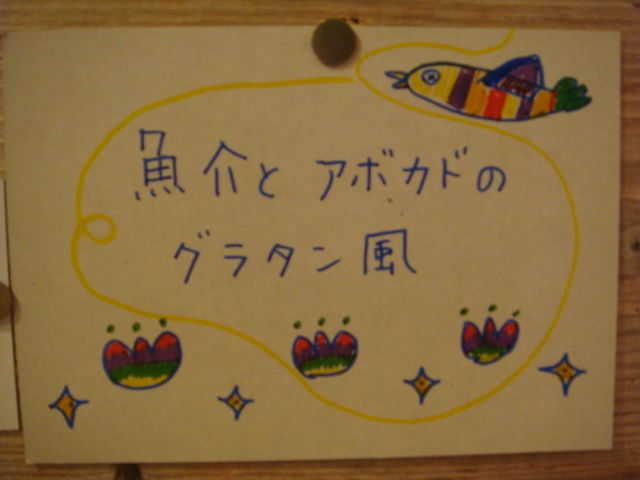 魚介とアボカドの
グラタン風